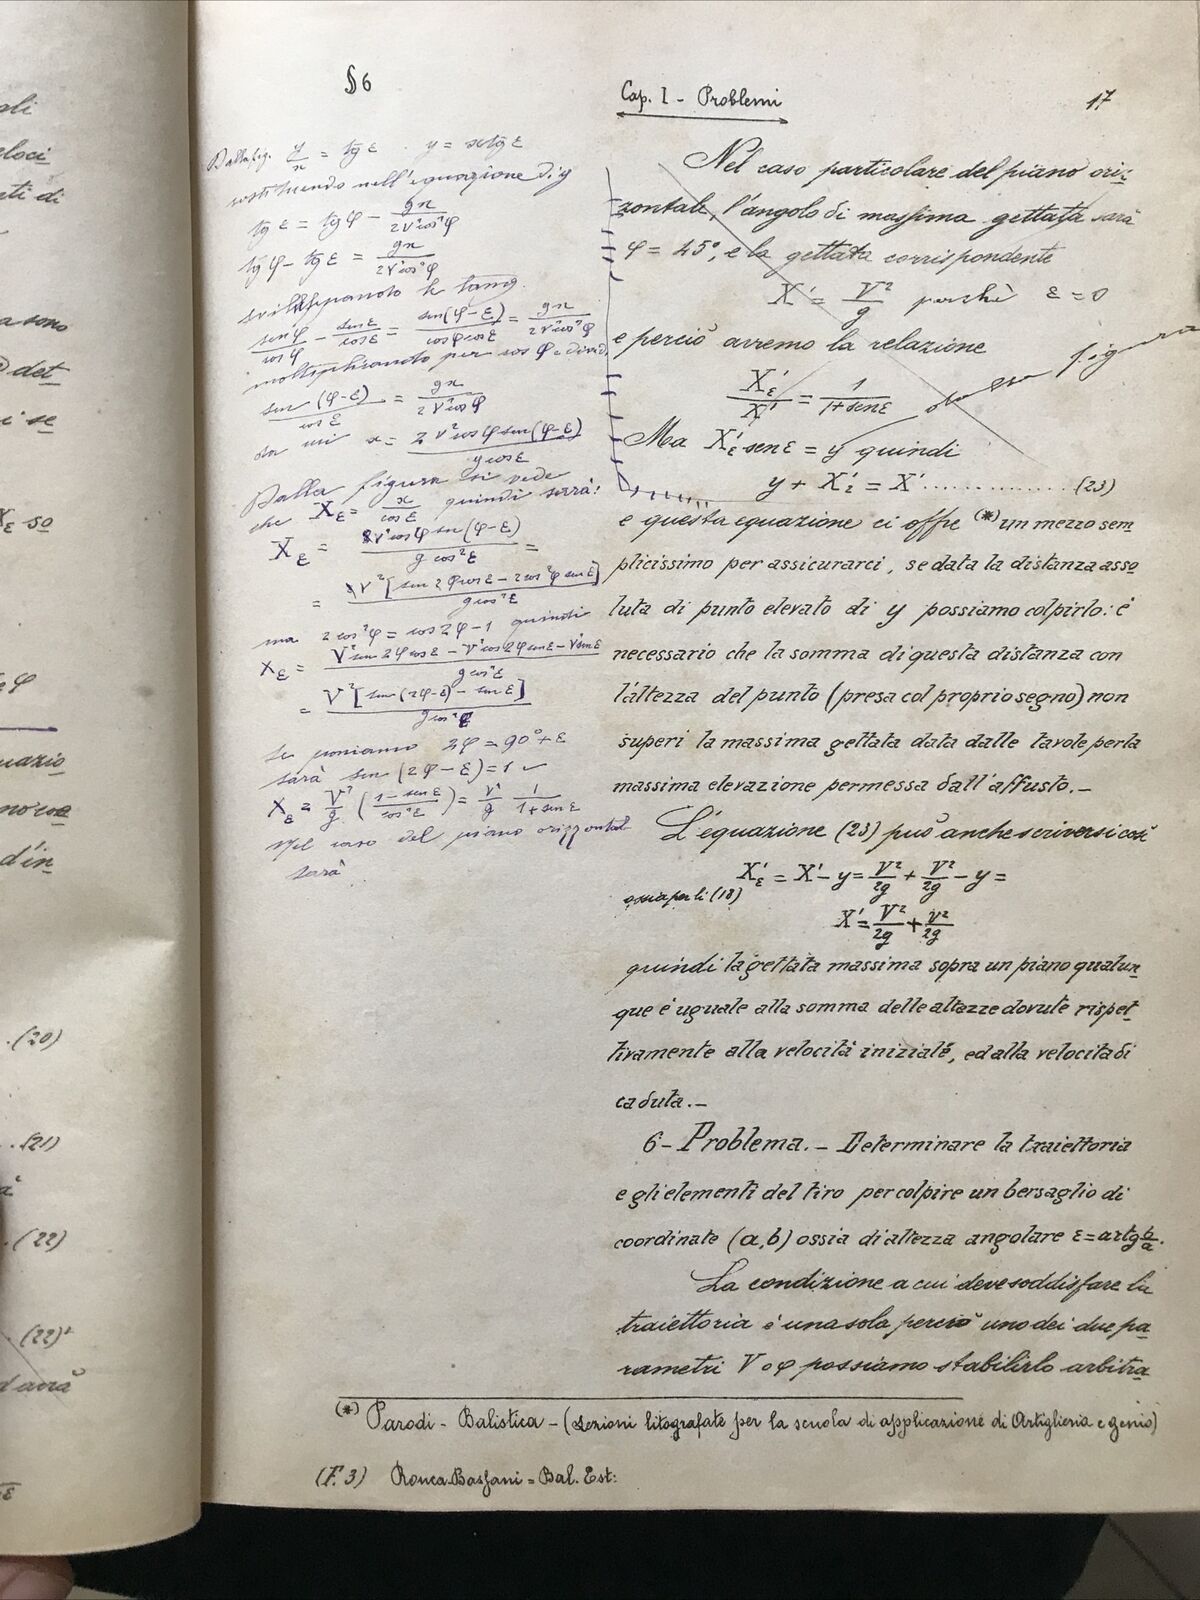 §6
Cap. I - Problemi
17
Dalla fig. y/x = tgε   y = x tgε
sostituendo nell'equazione di y
tgε = tgφ - gx/2V²cos²φ
tgφ - tgε = gx/2V²cos²φ
sviluppando le tang.
senφ/cosφ - senε/cosε = sen(φ-ε)/cosφcosε = gx/2V²cos²φ
moltiplicando per cos φ e divid.
sen(φ-ε)/cosε = gx/2V²cosφ
da cui x = 2V²cosφsen(φ-ε)/gcosε
Dalla figura si vede
che Xε = x/cosε quindi sarà:
Xε = 2V²cosφsen(φ-ε)/g cos²ε =
= V²[sen2φcosε - 2cos²φsenε]/gcos²ε
ma 2cos²φ = cos2φ-1 quindi
Xε = V²sen2φcosε - V²cos2φsenε - V²senε/gcos²ε
= V²[sen(2φ-ε) - senε]/gcos²ε
Se poniamo 2φ = 90°+ε
sarà sen(2φ-ε) = 1
Xε = V²/g (1-senε/cos²ε) = V²/g 1/1+senε
Nel caso del piano orizzontal
sarà
Nel caso particolare del piano oriz-
zontale, l'angolo di massima gettata sarà
φ = 45°, e la gettata corrispondente
X' = V²/g perchè ε = 0
e perciò avremo la relazione
X'ε/X' = 1/1+senε
figura
Ma X'ε senε = y quindi
y + X'ε = X' ............... (23)
e questa equazione ci offre (*) un mezzo sem-
plicissimo per assicurarci, se data la distanza asso-
luta di punto elevato di y possiamo colpirlo: è
necessario che la somma di questa distanza con
l'altezza del punto (presa col proprio segno) non
superi la massima gettata data dalle tavole per la
massima elevazione permessa dall'affusto.-
L'equazione (23) può anche scriversi così
X'ε = X' - y = V²/2g + V²/2g - y =
ossia per li (18)
X' = V²/2g + v²/2g
quindi la gettata massima sopra un piano qualun-
que è uguale alla somma delle altazze dovute rispet-
tivamente alla velocità iniziale, ed alla velocità di
caduta.-
6- Problema.- Determinare la traiettoria
e gli elementi del tiro per colpire un bersaglio di
coordinate (a,b) ossia di altezza angolare ε = artg b/a.
La condizione a cui deve soddisfare la
traiettoria è una sola perciò uno dei due pa-
rametri V o φ possiamo stabilirlo arbitra-
(*) Parodi - Balistica - (Lezioni litografate per la scuola di applicazione di Artiglieria e genio)
(F. 3) Ronca-Bassani = Bal. Est:
(20)
(21)
(22)
(22)'